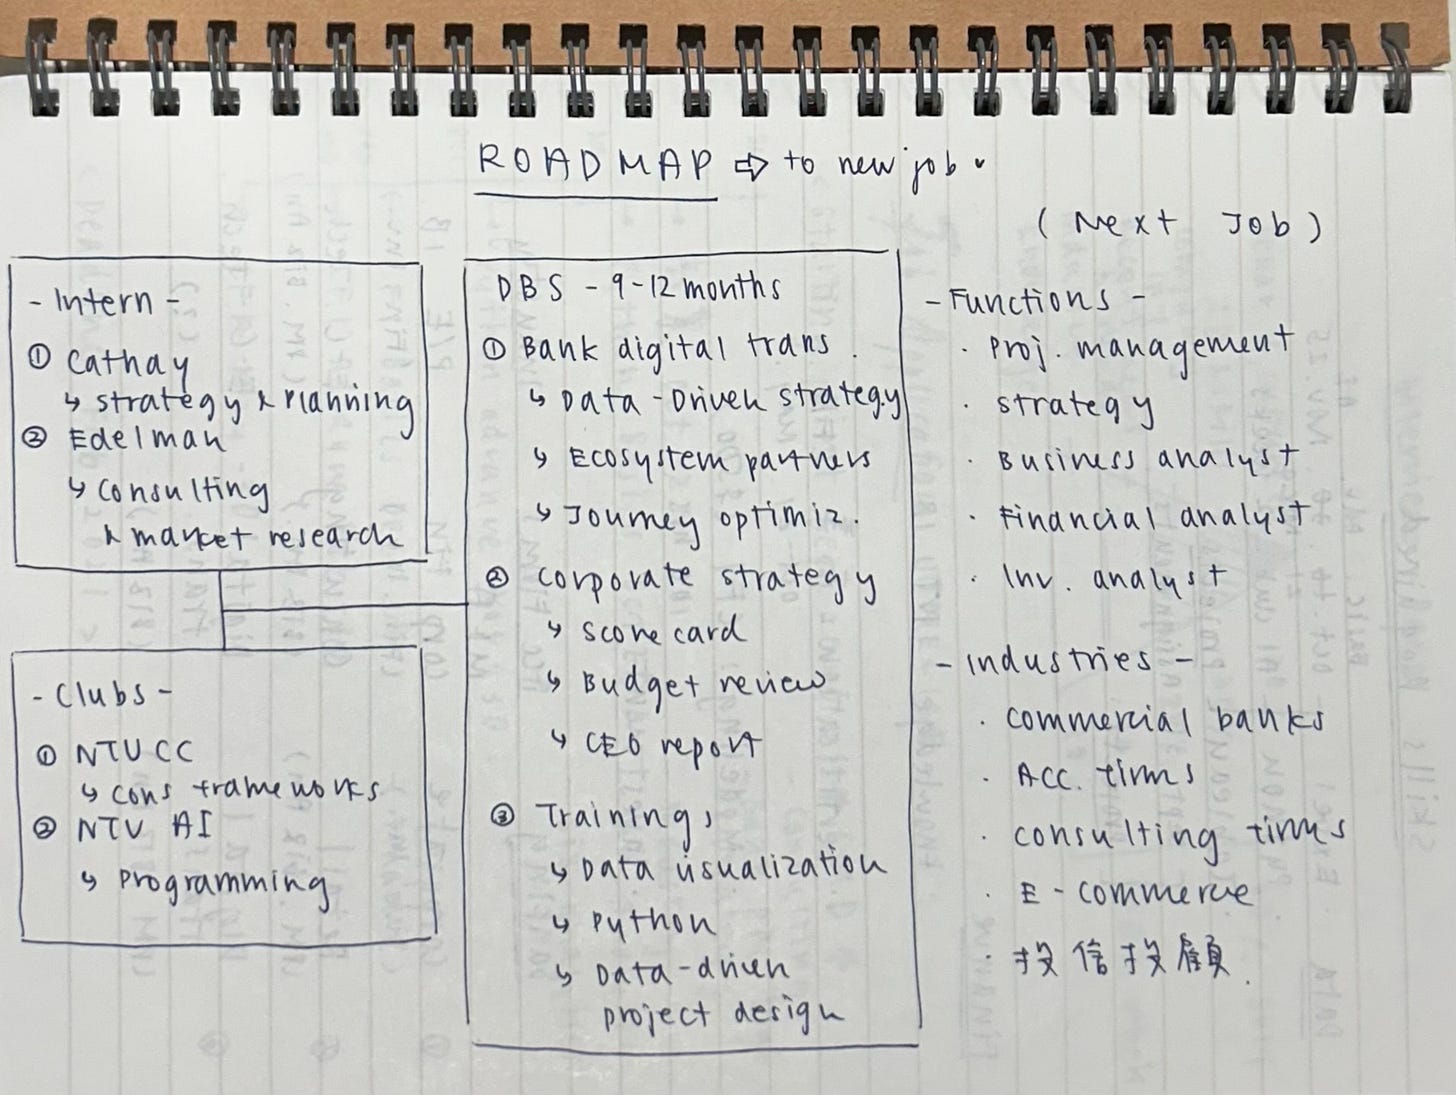 ROADMAP ⇨ to new job
(Next Job)
- Intern -
① Cathay
↳ strategy & Planning
② Edelman
↳ consulting
& market research
- Clubs -
① NTUCC
↳ cons frameworks
② NTU AI
↳ programming
DBS - 9-12 months
① Bank digital trans.
↳ Data-Driven strategy
↳ Ecosystem partners
↳ Journey optimiz.
② corporate strategy
↳ scorecard
↳ Budget review
↳ CEO report
③ Trainings
↳ Data visualization
↳ Python
↳ Data-driven
project design
- Functions -
· Proj. management
· strategy
· Business analyst
· Financial analyst
· Inv. analyst
- Industries -
· commercial banks
· Acc. firms
· consulting firms
· E-commerce
· 投信投顧.